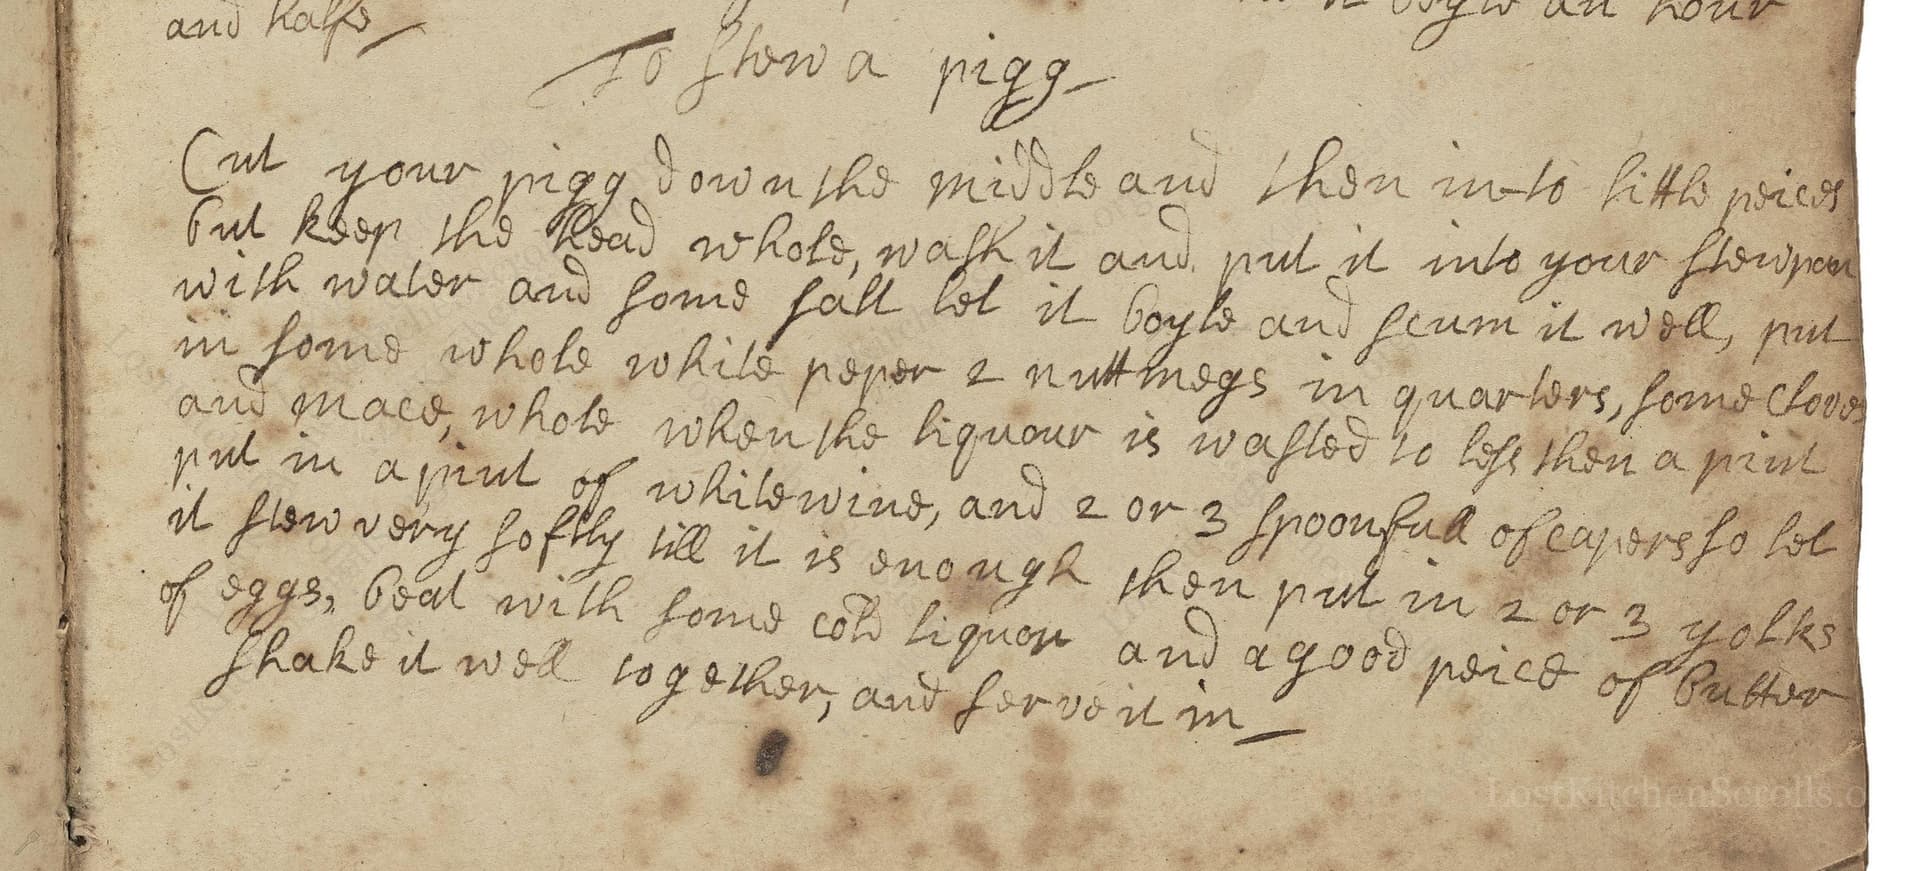 it boyle an hour
and halfe
To stew a pigg
Cut your pigg down the middle and then into little peices
but keep the head whole, wash it and put it into your stewpan
with water and some salt let it boyle and scum it well, put
in some whole white peper 2 nuttmegs in quarters, some Cloves
and mace, whole when the liquour is wasted to less then a pint
put in a pint of whitewine, and 2 or 3 spoonfull of capers so let
it stew very softly till it is enough then put in 2 or 3 yolks
of eggs, beat with some cold liquour and a good peice of butter
shake it well together, and serve it in
LostKitchenScrolls.o